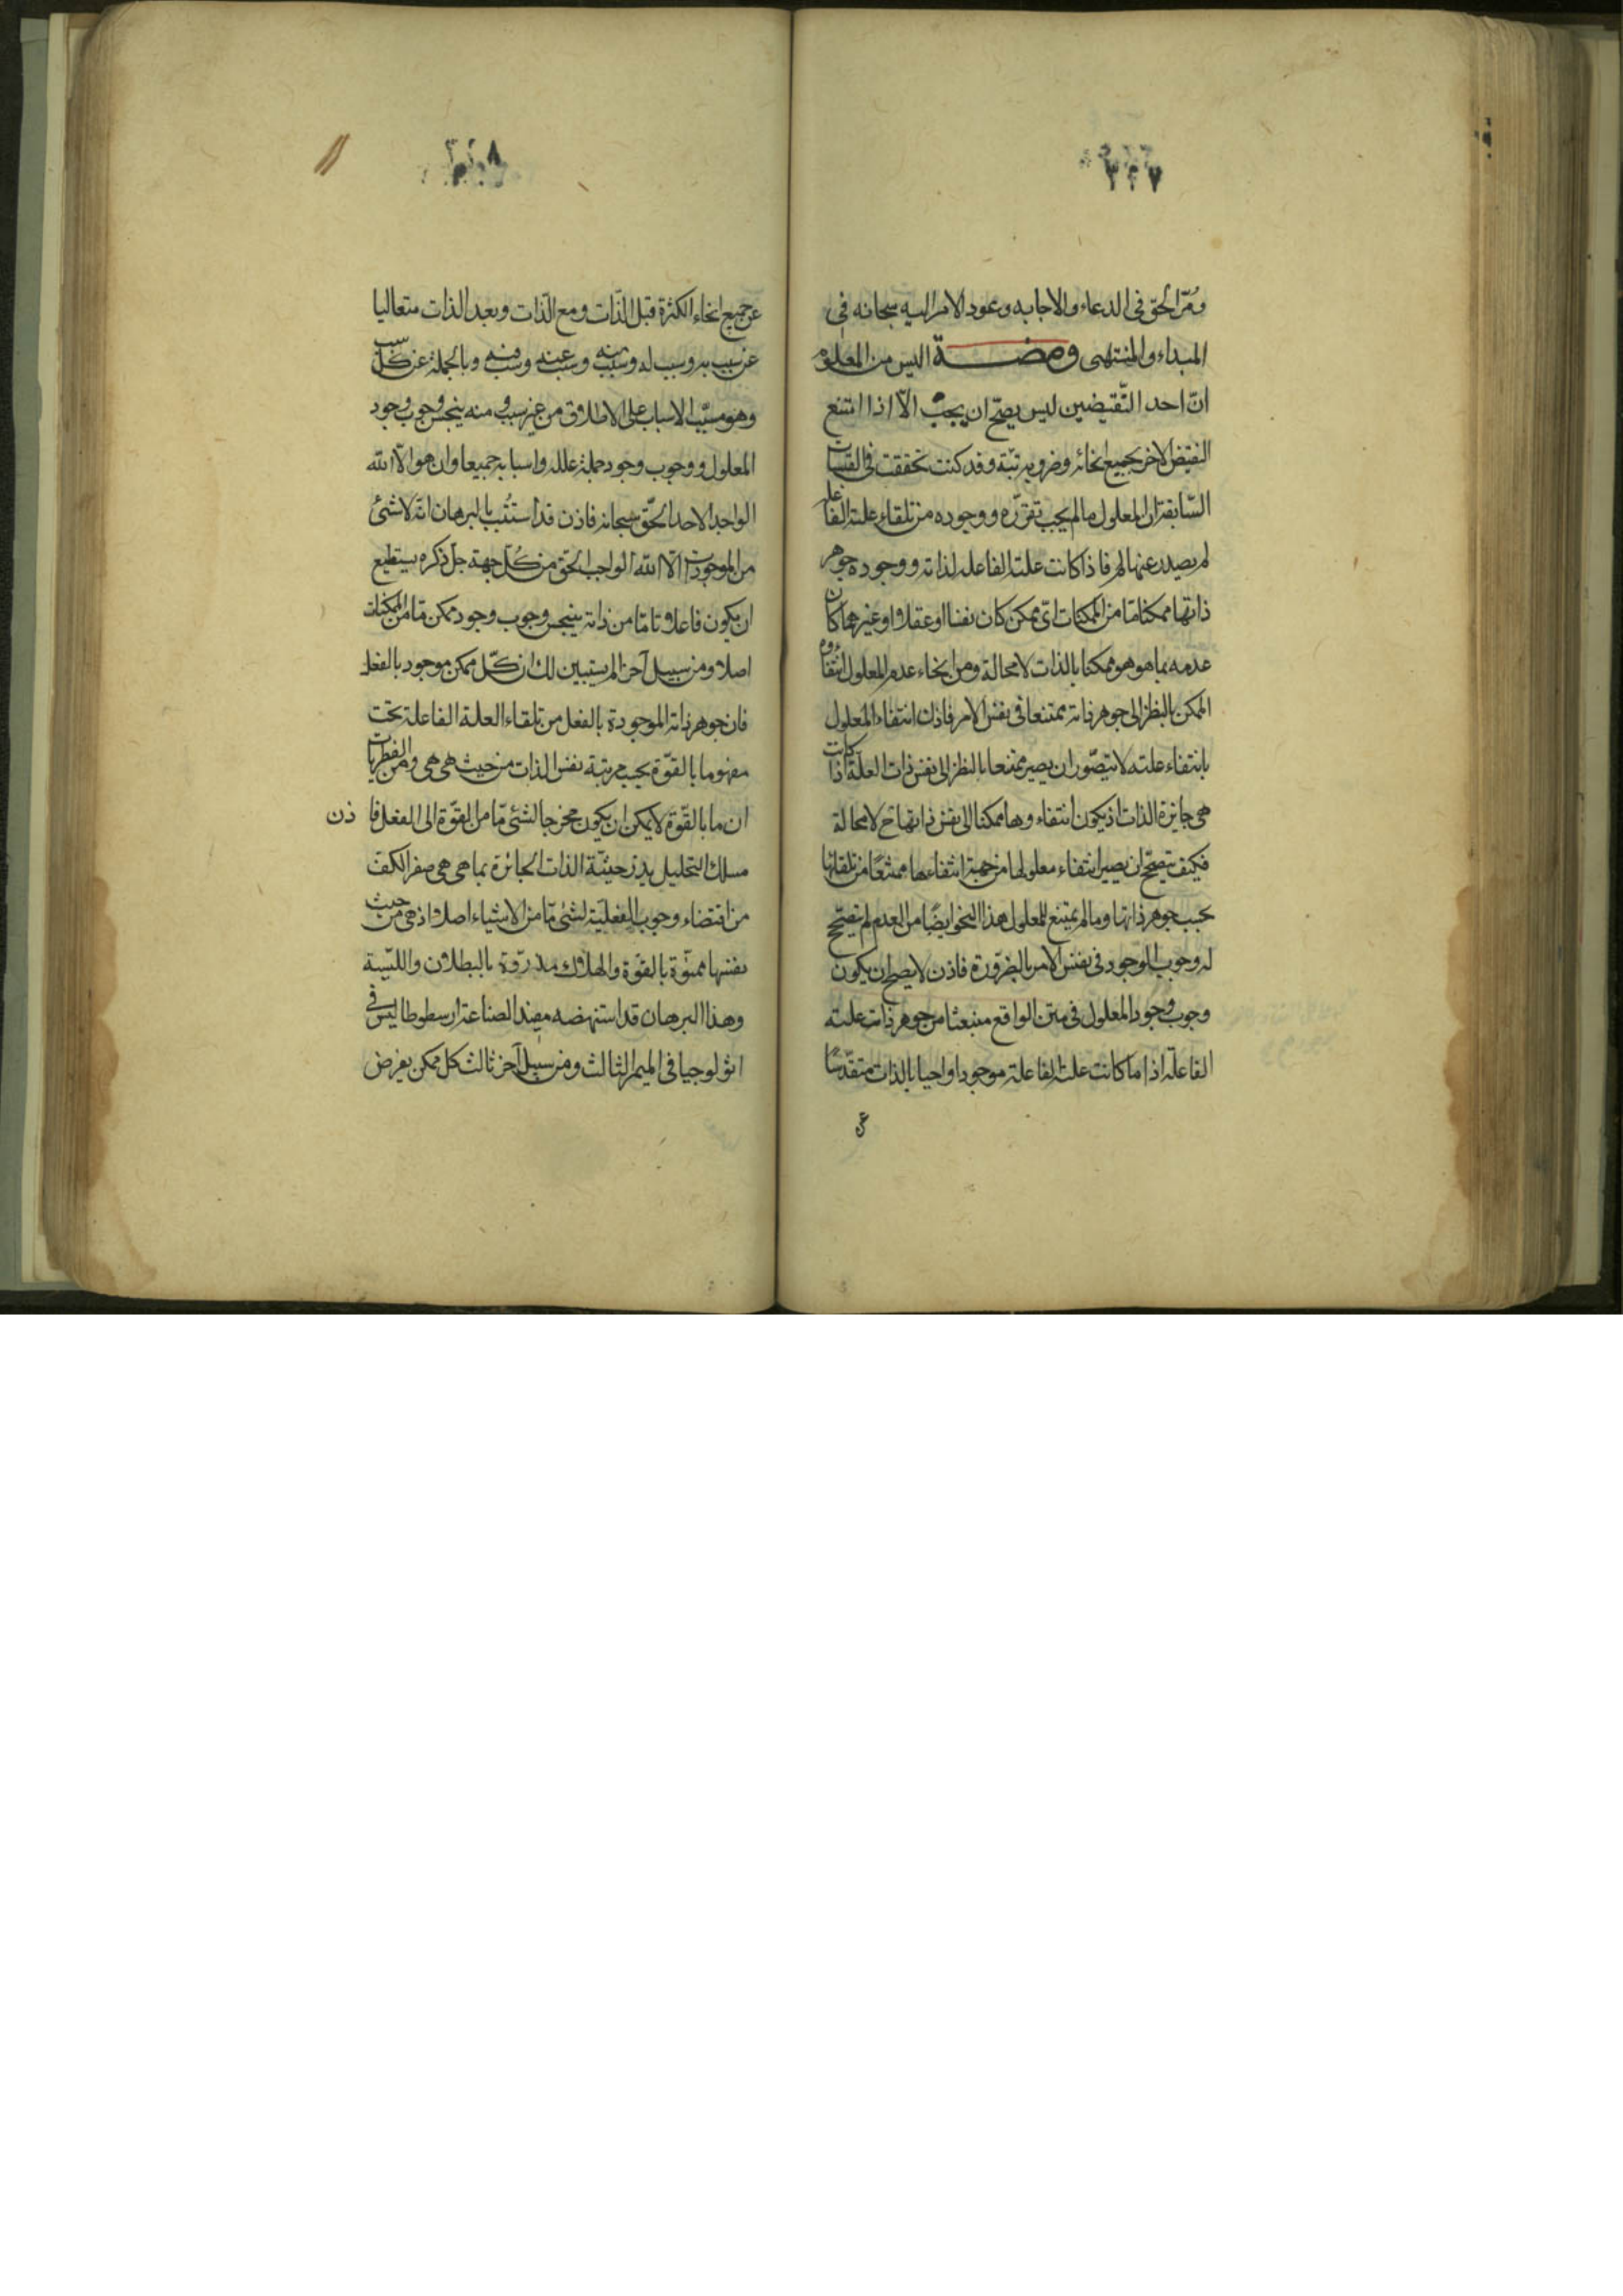 ٣٢٧
ومُرّ الحق فى الدعاء والاجابه وعود الامر اليه سبحانه فى
المبداء والمنتهى ومضة اليس من المعلوم
انّ احد النّقيضين ليس يصحّ ان يجب الّا اذا امتنع
النقيض الاخر بجميع انحائه وضروبه بتّة وقد كنت تحققت فى القبسات
السّابقة ان المعلول ما لم يجب تقرّره ووجوده من تلقاء علته الفاعله
لم يصدر عنها لم فاذا كانت علته الفاعله لذاته ووجوده جوهر
ذاتها ممكنا مّا من الممكنات اىّ ممكن كان نفسا او عقلا او غيرهما كان
عدمه بما هو هو ممكنا بالذات لا محالة ومن انحاء عدم المعلول انتفاؤه
الممكن بالنظر الى جوهر ذاته ممتنعا فى نفس الامر فاذن انتفاء المعلول
بانتفاء علته لا يتصّور ان يصير ممتنعا بالنظر الى نفس ذات العلّة اذا كانت
هى جايزة الذات اذ يكون انتفاءوها ممكنا الى نفس ذاتها ح لا محالة
فكيف يتصحّ ان يصير انتفاء معلولها من جهة انتفاءها ممتنعًا من تلقائها
بحسب جوهر ذاتها وما لم يمتنع للمعلول هذا النحو ايضًا من العدم لم يتصحّح
له وجوب الوجود فى نفس الامر بالضرورة فاذن لا يصح ان يكون
وجوب وجود المعلول فى متن الواقع منبعثا من جوهر ذات علته
الفاعلّة اذا ما كانت علته الفاعلة موجودا واجبا بالذات متقدّسًا
عن
٣٢٨
عن جميع انحاء الكثرة قبل الذّات ومع الذّات وبعد الذات متعاليا
عن سبب به وسبب له وسبب منه وسبب عنه وسبب فيه وبالجملة عن كل سبب
وهو مسبّب الاسباب على الاطلاق من غير سبب و منه ينبجس وجوب وجود
المعلول ووجوب وجود جملة علله واسبابه جميعا وان هو الّا الله
الواحد الاحد الحقّ سبحانه فاذن قد استتبّ بالبرهان انّه لا شئ
من الموجودات الّا الله الواجب الحق من كلّ جهة جلّ ذكره يستطيع
ان يكون فاعلا تامّا من ذاته ينبجس وجوب وجود ممكن مّا من الممكنات
اصلا ومن سبيل آخر الم يستبين لك ان كلّ ممكن موجود بالفعل
فان جوهر ذاته الموجودة بالفعل من تلقاء العلة الفاعلة تحت
مفهوم ما بالقوّة بحسب مرتبة نفس الذات من حيث هى هى ومن الفطريات
ان ما بالقوّة لا يمكن ان يكون مخرجا لشئ مّا من القوّة الى الفعل فا ذن
مسلك التحليل يذر حيثيّة الذات الجائزة بما هى هى صفر الكف
من اقتضاء وجوب الفعليّة لشئ مّا من الاشياء اصلا اذ هى من حيث
نفسها ممنوّة بالقوّة والهلاك مذروّة بالبطلان والليّسية
وهذا البرهان قد استنهضه مفيد الصناعة ارسطوطاليس فى
اثولوجيا فى الميمر الثالث ومن سبيل آخر ثالث كل ممكن يفرض